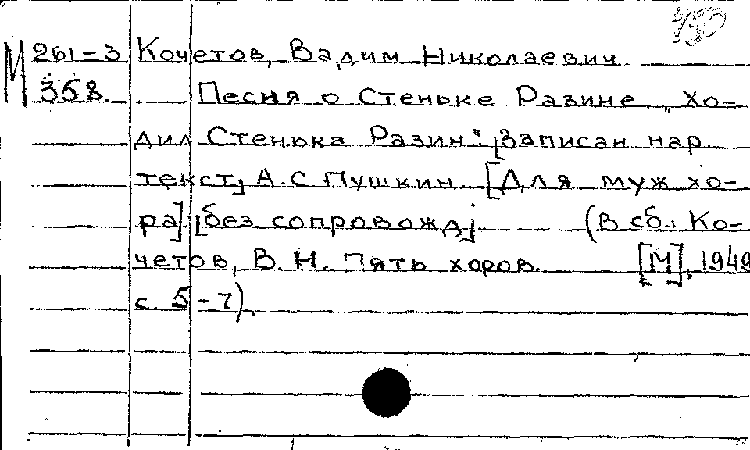 М 261-3 Кочетов, Вадим Николаевич.
358. Песня о Стеньке Разине „Хо-
дил Стенька Разин" [Записан нар
текст] А. С Пушкин. [Для муж хо-
ра] [без сопровожд] (В сб.: Ко-
четов, В. Н. Пять хоров. [М], 1949
с 5-7).